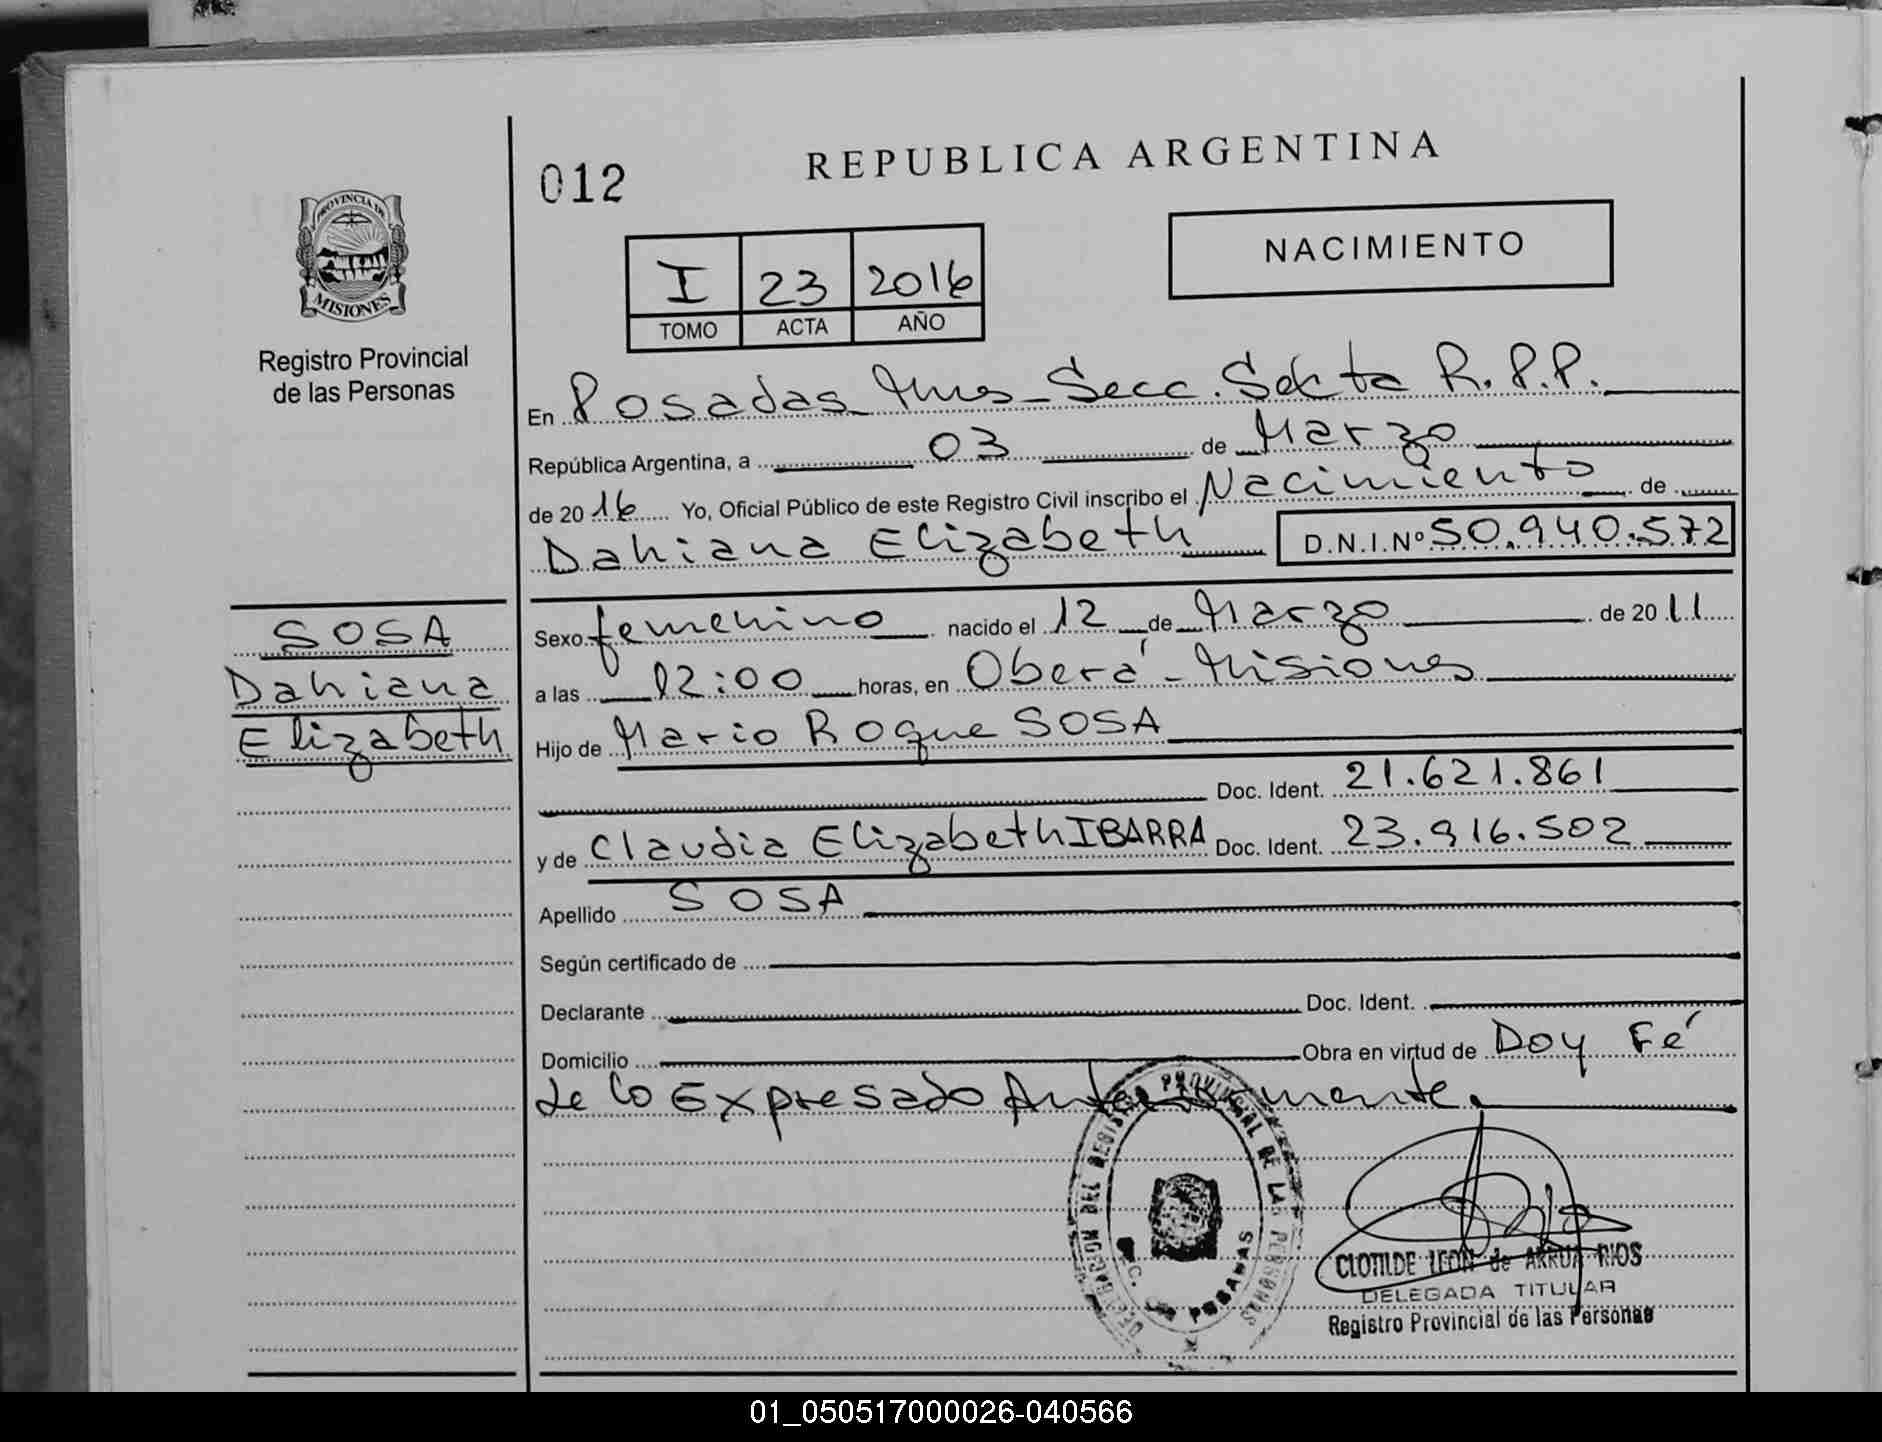 012
REPUBLICA ARGENTINA
PROVINCIA DE
MISIONES
Registro Provincial
de las Personas
I 23 2016
TOMO ACTA AÑO
NACIMIENTO
En Posadas Mnes - Secc. Sexta R.P.P.
República Argentina, a 03 de Marzo
de 2016 Yo, Oficial Público de este Registro Civil inscribo el Nacimiento de
Dahiana Elizabeth D.N.I.Nº 50.940.572
SOSA
Dahiana
Elizabeth
Sexo femenino nacido el 12 de Marzo de 2011
a las 12:00 horas, en Oberá - Misiones
Hijo de Mario Roque SOSA
Doc. Ident. 21.621.861
y de Claudia Elizabeth IBARRA Doc. Ident. 23.916.502
Apellido SOSA
Según certificado de
Declarante Doc. Ident.
Domicilio Obra en virtud de Doy Fé
de lo Expresado Anteriormente.
DELEGACION DEL REGISTRO PROVINCIAL DE LAS PERSONAS
POSADAS
CLOTILDE LEON de ARRUA RIOS
DELEGADA TITULAR
Registro Provincial de las Personas
01_050517000026-040566